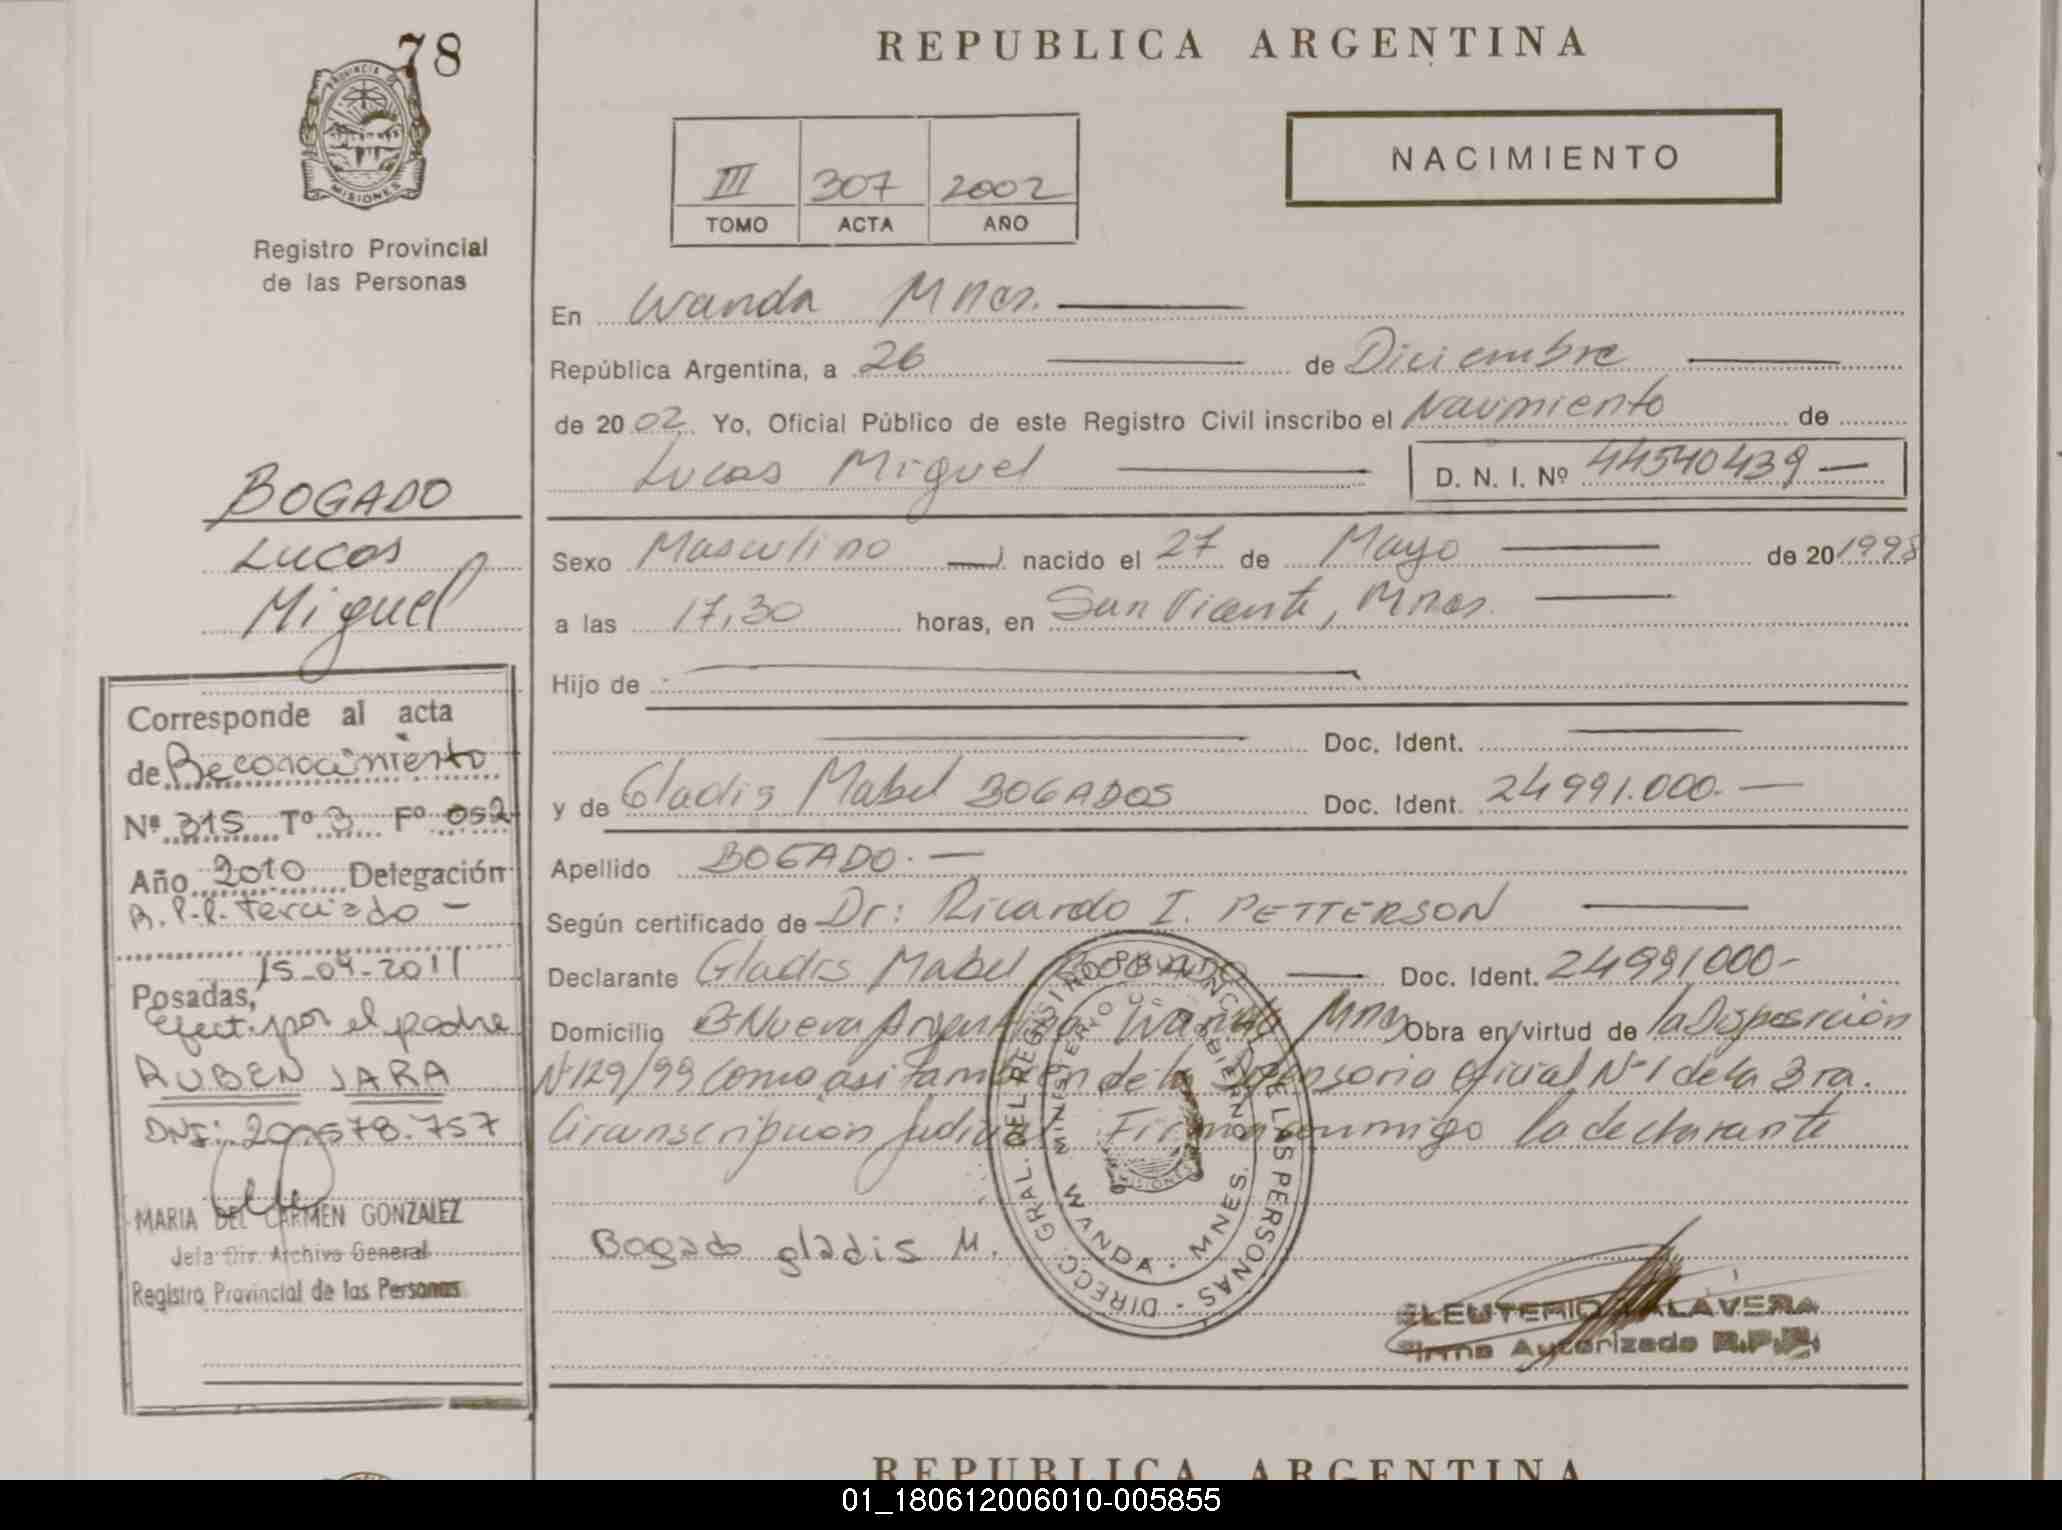 78
PROVINCIA DE
MISIONES
Registro Provincial
de las Personas
BOGADO
Lucas
Miguel
Corresponde al acta
de Reconocimiento
Nº 315 Tº 3 Fº 052
Año 2010 Delegación
R.P.P. Terciado -
15-04-2011
Posadas,
Efect. por el padre
RUBEN JARA
DNI: 20.578.757
MARIA DEL CARMEN GONZALEZ
Jefa Div. Archivo General
Registro Provincial de las Personas
REPUBLICA ARGENTINA
III 307 2002
TOMO ACTA AÑO
NACIMIENTO
En Wanda Mnes.
República Argentina, a 26 de Diciembre
de 2002 Yo, Oficial Público de este Registro Civil inscribo el Nacimiento de
Lucas Miguel D. N. I. Nº 44540439 —
Sexo Masculino nacido el 27 de Mayo de 20 1998
a las 17,30 horas, en San Vicente, Mnes.
Hijo de
Doc. Ident.
y de Gladis Mabel BOGADOS Doc. Ident. 24991.000. —
Apellido BOGADO. —
Según certificado de Dr: Ricardo I. PETTERSON
Declarante Gladis Mabel BOGADO Doc. Ident. 24991000-
Domicilio Bº Nueva Argentina Wanda Mnes Obra en virtud de la Disposición
Nº 129/99 Como asi tambien de la Defensoria Oficial Nº 1 de la 3ra.
Circunscripcion Judicial Firma conmigo la declarante
Bogado gladis M.
DIRECC. GRAL. DEL REGISTRO PROVINCIAL DE LAS PERSONAS -
MINISTERIO DE GOBIERNO
WANDA - MNES.
ELEUTERIO TALAVERA
Firma Autorizada R.P.P.
REPUBLICA ARGENTINA
01_180612006010-005855